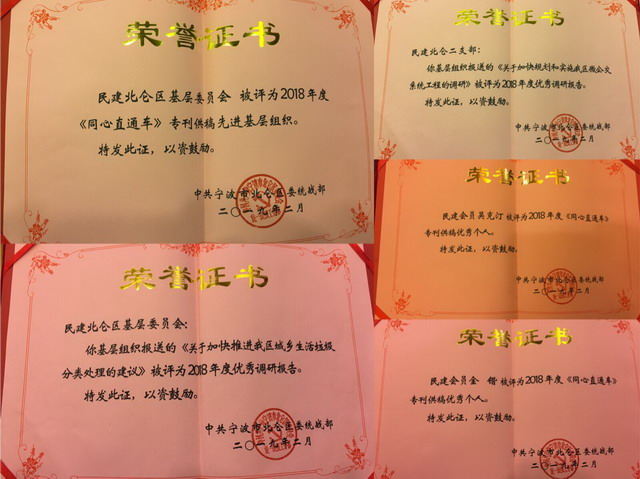 荣誉证书
民建北仑区基层委员会 被评为2018年度
《同心直通车》专刊供稿先进基层组织。
特发此证，以资鼓励。
中共宁波市北仑区委统战部
二〇一九年二月
荣誉证书
民建北仑区基层委员会：
你基层组织报送的《关于加快推进我区城乡生活垃圾
分类处理的建议》被评为2018年度优秀调研报告。
特发此证，以资鼓励。
中共宁波市北仑区委统战部
二〇一九年二月
民建北仑二支部：
你基层组织报送的《关于加快规划和实施我区微公交
系统工程的调研》被评为2018年度优秀调研报告。
特发此证，以资鼓励。
中共宁波市北仑区委统战部
二〇一九年二月
荣誉证书
民建会员吴克汀 被评为2018年度《同心直通车》
专刊供稿优秀个人。
特发此证，以资鼓励。
中共宁波市北仑区委统战部
二〇一九年二月
荣誉证书
民建会员金 锴 被评为2018年度《同心直通车》
专刊供稿优秀个人。
特发此证，以资鼓励。
中共宁波市北仑区委统战部
二〇一九年二月